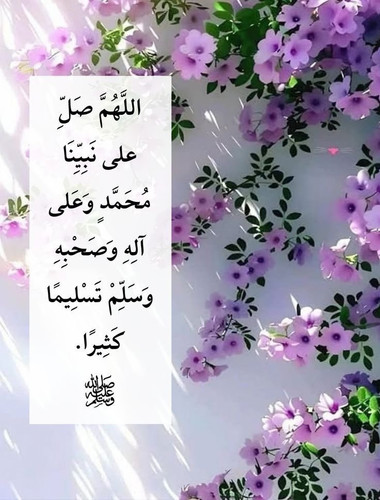 اللَّهُمَّ صَلِّ
على نَبِيِّنَا
مُحَمَّدٍ وَعَلى
آلِهِ وَصَحْبِهِ
وَسَلِّمْ تَسْلِيمًا
كَثِيرًا.
ﷺ